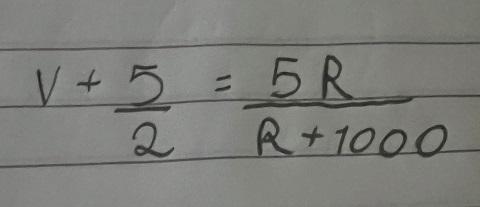 V + 5/2 = 5R/(R+1000)